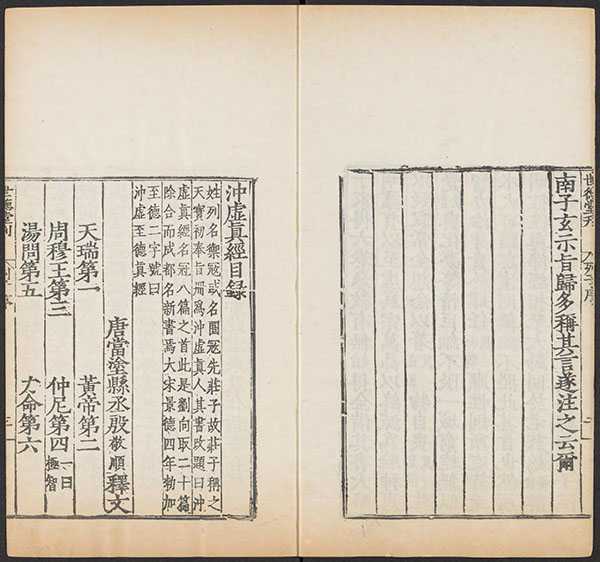 世德堂刊
南子玄示旨歸多稱其言遂注之云爾
沖虛眞經目録
姓列名禦冦或名圄冦先莊子故莊子稱之
天寶初奉旨冊爲沖虛眞人其書改題曰沖
虛眞經名冠八篇之首此是劉向取二十篇
除合而成都名新書焉大宋景德四年勑加
至德二字號曰
沖虛至德眞經
唐當塗縣丞殷敬順釋文
天瑞第一 黃帝第二
周穆王第三 仲尼第四一曰極智
湯問第五 力命第六
世德堂刊